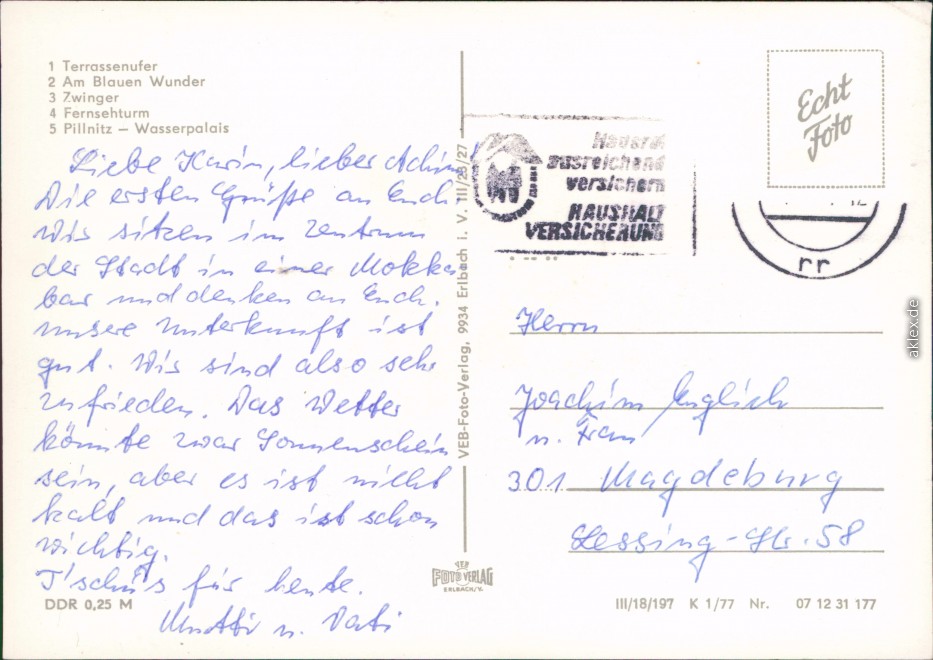 1 Terrassenufer
2 Am Blauen Wunder
3 Zwinger
4 Fernsehturm
5 Pillnitz – Wasserpalais
Liebe Karin, lieber Achim!
Die ersten Grüße an Euch
Wir sitzen im Zentrum
der Stadt in einer Mokka
bar und denken an Euch.
Unsere Unterkunft ist
gut. Wir sind also sehr
zufrieden. Das Wetter
könnte zwar Sonnenschein
sein, aber es ist nicht
kalt und das ist schon
wichtig.
T'schüs für heute.
Mutti u. Vati
DDR 0,25 M
VEB-Foto-Verlag, 9934 Erlbach i. V. III/26/27
VEB
FOTO VERLAG
ERLBACH/V.
Hausrat
ausreichend
versichern
HAUSHALT
VERSICHERUNG
Echt
Foto
12
rr
Herrn
Joachim Englich
u. Frau
301 Magdeburg
Lessing-Str. 58
III/18/197 K 1/77 Nr. 07 12 31 177
aklex.de